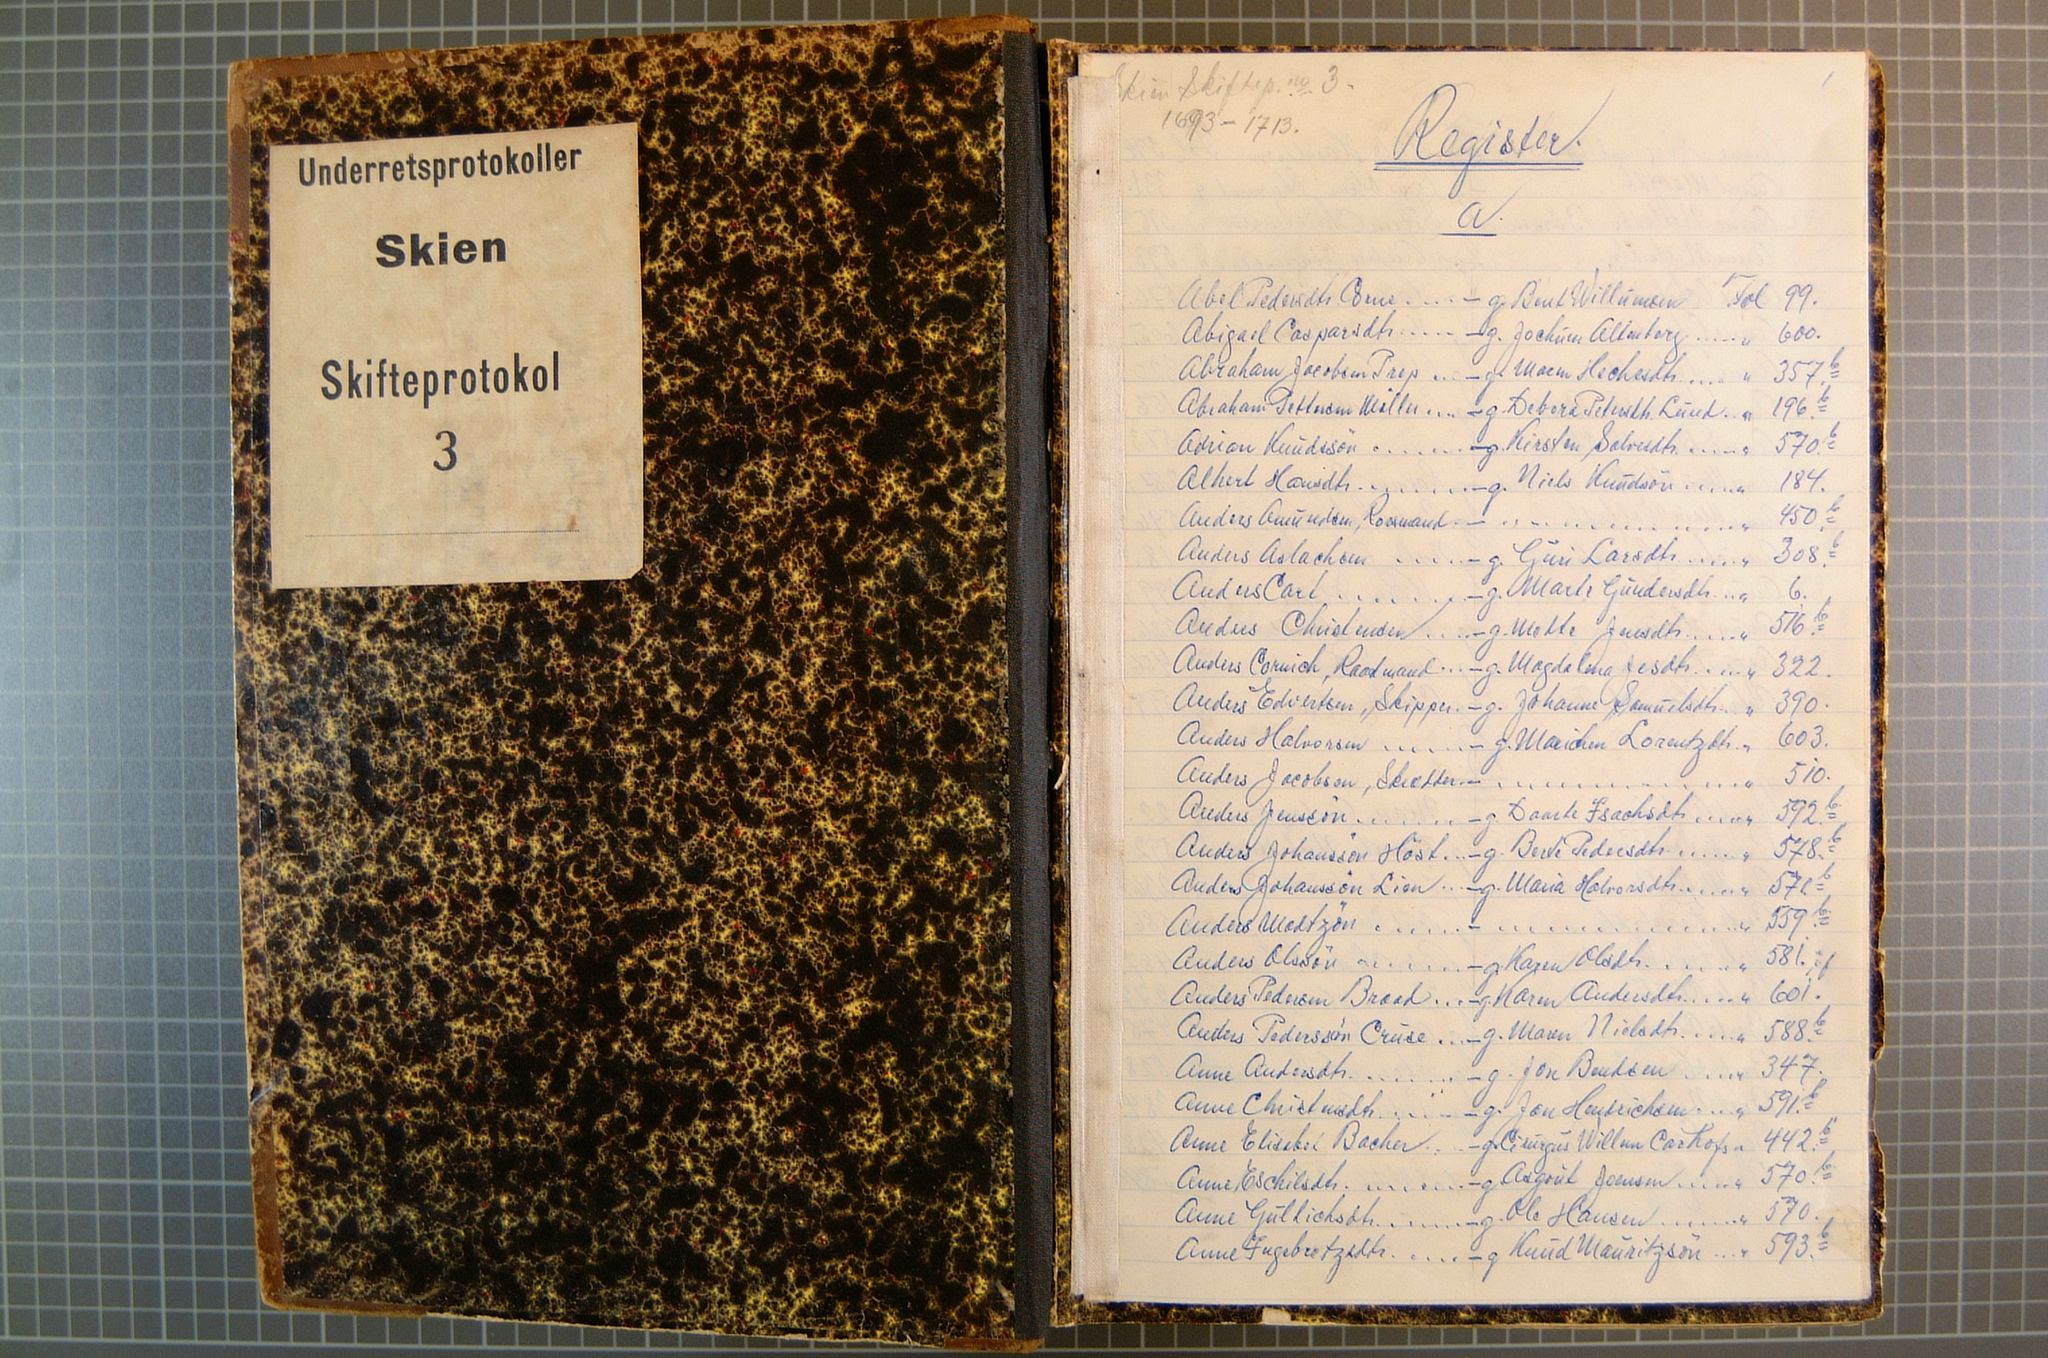 Underretsprotokoller
Skien
Skifteprotokol
3
Skien Skiftep. no 3.
1693-1713.
1
Register.
A.
Abel Pedersdtr. Corne..... - g. Bent Willumsen Fol 99.
Abigael Caspersdtr...... - g. Jochum Altenberg..... " 600.
Abraham Jacobsen Prep ... - g. Maren Hechesdtr.... " 357 b
Abraham Pettersen Möller ... - g. Debora Petersdtr. Lund.. " 196 b
Adrian Knudssön ........ - g. Kirsten Solvesdtr...... " 570 b
Albert Hansdtr......... - g. Niels Knudsön..... " 184.
Anders Amundsen, Roermand. - ........... " 450 b
Anders Aslachsen ..... - g. Guri Larsdtr...... " 308 b
Anders Cart ........ - g. Marte Gundersdtr... " 6.
Anders Christensen .... - g. Mette Jensdtr..... " 516 b
Anders Cornich, Raadmand... - g. Magdalena Jesdtr..... " 322.
Anders Edvertsen, Skipper. - g. Johanne Samuelsdtr... " 390.
Anders Halvorsen ...... - g. Maichen Lorentzdtr. " 603.
Anders Jacobsen, Skredder. - ........... " 510.
Anders Jenssön......... - g. Daarte Isachsdtr..... " 592 b
Anders Johanssön Höst... - g. Berte Pedersdtr....... " 578 b
Anders Johanssön Lien ... - g. Maria Halvorsdtr...... " 571 b
Anders Madtzön ...... - ........... " 559 b
Anders Olssön ....... - g. Karen Olsdtr....... " 581. if
Anders Pedersen Braad ... - g. Karen Andersdtr..... " 601.
Anders Pederssön Cruse ... - g. Maren Nielsdtr..... " 588 b
Anne Andersdtr......... - g. Jon Bendsen ..... " 347.
Anne Christensdtr....... - g. Jon Hendrichsen.... " 591 b
Anne Elisabet Bacher ... - g. Cirurgus Willum Carthofs " 442 b
Anne Eschilsdtr. ....... - g. Asgout Joensen ..... " 570 b
Anne Gullichsdtr........ - g. Ole Hansen ....... " 570.
Anne Ingebretzsdtr. ..... - g Knud Mauritzsön .... " 593 b